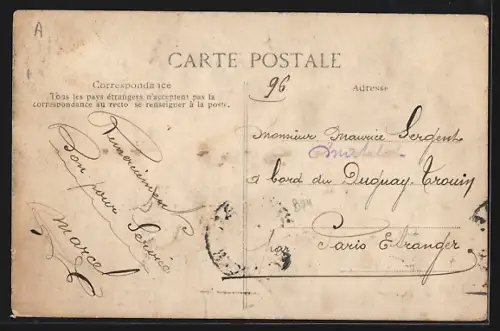 A
CARTE POSTALE
Correspondance
Tous les pays étrangers n'acceptent pas la
correspondance au recto se renseigner à la poste.
Remerciement
Bon pour Service
Marcel
96
Adresse
Monsieur Maurice Sergent
Matelot
à bord du Duguay-Trouin
par Paris Etranger